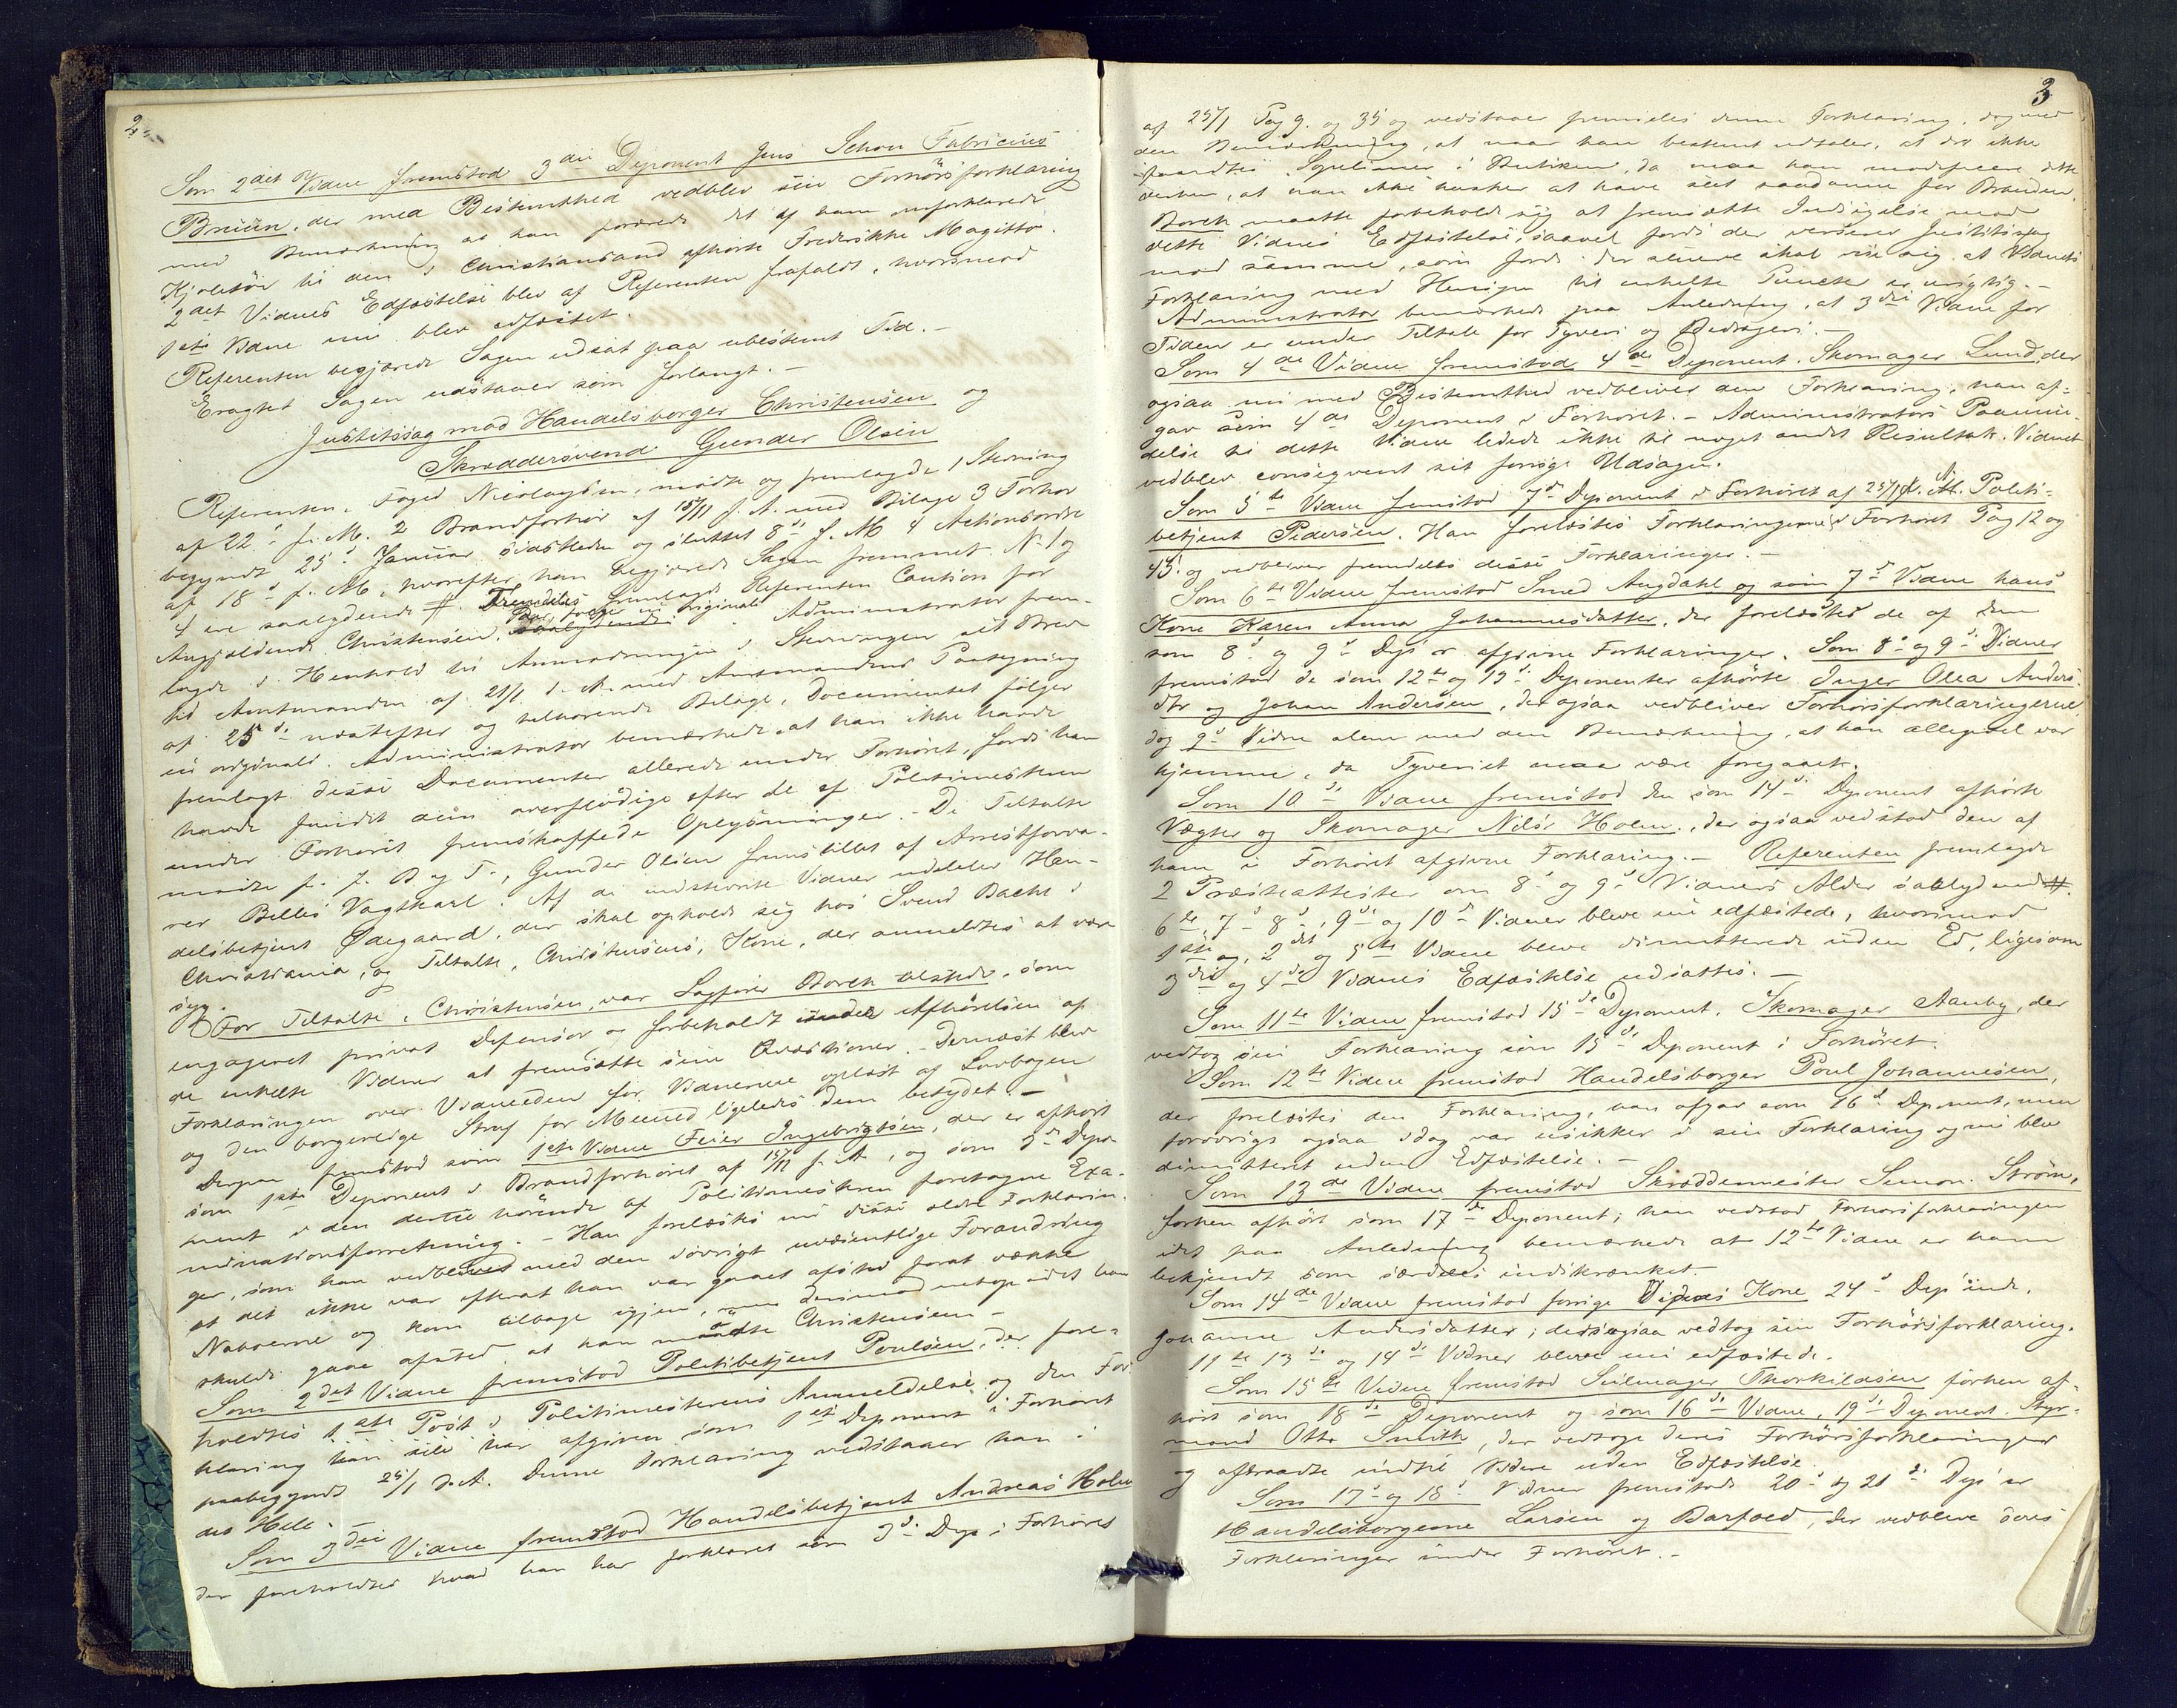 2
Som 2det Vidne fremstod 3die Deponent Jens Schou Fabricius
Bruun, der med Bestemthed vedblev sin Forhørsforklaring
med Bemærkning at han forærede det af ham omforklarede
Kjoletöi til den i Christianssand afhörte Fredrikke Magitta.
2det Vidnes Edfæstelse blev af Referenten frafaldt, hvorimod
1ste Vidne nu blev edfæstet.
Referenten begjærede Sagen udsat paa ubestemt Tid.-
Eragtet Sagen udstaaer som forlangt.-
Justitssag mod Handelsborger Christensen og
Skræddersvend Gunder Olsen
Referenten, Foged Nicolaysen, mödte og fremlagde 1 Stevning
af 22d f. M. 2 Brandforhör af 15/11 f. A. med Bilage 3 Forhör
begyndt 25d Januar sidstleden og sluttet 8d f. M 4 Actionsordre
af 18d f. M, hvorefter han begjærede Sagen fremmet. No 1 og
4 ere saalydende #. Fremdeles fremlagde Referenten Caution for
Angjældende Christensen, følger in originali. Administrator frem-
lagde i Henhold til Anmodningen i Stevningen sit Brev
til Amtmanden af 21/1 d. A. med Amtmandens Paategning
af 25d næstefter og tilhørende Bilage, Documentet følger
in originali. Administrator bemærkede at han ikke havde
fremlagt disse Documenter allerede under Forhöret, fordi han
havde fundet dem overflödige efter de af Politimesteren
under Forhöret fremskaffede Oplysninger.- De Tiltalte
mödte f. f. B og T., Gunder Olsen fremstillet af Arrestforva-
rer Belles Vagtkarl. Af de indstevnte Vidner udeblev Han-
delsbetjent Ødegaard, der skal opholde sig hos Svend Bache i
Christiania, og Tiltalte, Christensens, Kone, der anmeldtes at være
syg.
For Tiltalte, Christensen, var Sagförer Borch tilstede, som
engageret privat Defensor og forbeholdt under Afhörelsen af
de enkelte Vidner at fremsætte sine Qvæstioner.- Dernæst blev
Forklaringen over Vidneeden for Vidnerne oplæst af Lovbogen
og den borgerlige Straf for Meened ligeledes dem betydet.-
Derpaa fremstod som 1ste Vidne Feier Ingebrigtsen, der er afhört
som 1ste Deponent i Brandforhöret af 15/11 f. A, og som 2d Depo-
nent i den dertil hörende af Politimesteren foretagne Exa-
minationsforretning.- Han forelæstes nu disse ældre Forklarin-
ger, som han vedblev med den iövrigt uvæsentlige Forandring
at det ikke var efterat han var gaaet afsted forat vække
Naboerne og kom tilbage igjen, men derimod netop idet han
skulde gaae afsted, at han mödte Christensen-
Som 2det Vidne fremstod Politibetjent Poulsen, der fore-
holdtes 1ste Post i Politimesterens Anmeldelse og den For-
klaring han selv har afgiven som 1ste Deponent i Forhöret
paabegyndt 25/1 d. A. Denne Forklaring vedstaaer han i
det Hele.
Som 3die Vidne fremstod Handelsbetjent Andreas Holm
der foreholdtes hvad han har forklaret som 3d Dep i Forhöret
3
af 25/1 Pag 9. og 35 og vedstaaer fremdeles denne Forklaring, dog med
den Bemærkning, at naar han bestemt udtaler, at der ikke
fandtes Spielimer i Butiken, da maa han modificere dette
derhen, at han ikke husker at have seet saadanne før Branden.
Borch maatte forbeholde sig at fremsætte Indsigelse mod
dette Vidnes Edfæstelse, saavel fordi der verserer Justitssag
mod samme, som fordi det senere skal vise sig at Vidnets
Forklaring med Hensyn til enkelte Puncter er urigtig.-
Administrator bemærkede paa Anledning, at 3die Vidne for
Tiden er under Tiltale for Tyveri og Bedrageri.-
Som 4de Vidne fremstod 4de Deponent, Skomager Lund, der
ogsaa nu med Bestemthed vedbliver den Forklaring, han af-
gav som 4de Deponent i Forhöret.- Administrators Paamin-
delse til dette Vidne ledede ikke til noget andet Resultat. Vidnet
vedblev conseqvent sit forrige Udsagn.
Som 5te Vidne fremstod 7d Deponent i Forhöret af 25/1 d. A. Politi-
betjent Pedersen. Han forelæstes Forklaringerne i Forhöret Pag 12 og
45. og vedbliver fremdeles disse Forklaringer.-
Som 6te Vidne fremstod Smed Angdahl og som 7d Vidne hans
Kone Karen Anna Johannesdatter, der forelæsted de af dem
som 8d og 9d Dep's er afgivne Forklaringer. Som 8d og 9d Vidner
fremstod de som 12te og 13d Deponenter afhörte Inger Olea Anders-
dtr og Johan Andersen, der ogsaa vedbliver Forhörsforklaringerne,
dog 9d Vidne alene med den Bemærkning, at han alligevel var
hjemme, da Tyveriet maa være foregaaet.
Som 10d Vidne fremstod den som 14d Deponent afhörte
Vægter og Skomager Nils Holm, der ogsaa vedstod den af
ham i Forhöret afgivne Forklaring.- Referenten fremlagde
2 Præsteattester om 8d og 9d Vidners Alder saalydende #.
6te, 7d 8d, 9d og 10d Vidner bleve nu edfæstede, hvorimod
1ste og, 2det og 5te Vidne bleve dimitterede uden Ed, ligesom
3die og 4de Vidnes Edfæstelse udsattes.-
Som 11te Vidne fremstod 15d Deponent, Skomager Aanby, der
vedtog sin Forklaring som 15d Deponent i Forhöret.
Som 12te Vidne fremstod Handelsborger Poul Johannesen,
der forelæstes den Forklaring, han afgav som 16d Deponent, men
forövrigt ogsaa idag var usikker i sin Forklaring og nu blev
dimitteret uden Edfæstelse.-
Som 13de Vidne fremstod Skræddermester Simon Ström,
forhen afhört som 17d Deponent; han vedstod Forhørsforklaringen
idet paa Anledning bemærkede at 12te Vidne er ham
bekjendt som særdeles indskrænket.
Som 14de Vidne fremstod forrige Vidnes Kone 24d Dep'inde,
Johanne Andersdatter; der ogsaa vedtog sin Forhörsforklaring.
11te 13d og 14d Vidner bleve nu edfæstede.
Som 15de Vidne fremstod Seilmager Thorkildsen forhen af-
hört som 18d Deponent og som 16d Vidne, 19d Deponent Styr-
mand Otto Smith, der vedtoge deres Forhörsforklaringer
og aftraadte indtil Videre uden Edfæstelse.
Som 17d og 18d Vidner fremstode 20d og 21d Dep'er
Handelsborgerne Larsen og Barfoed, der vedbleve deres
Forklaringer under Forhöret.-